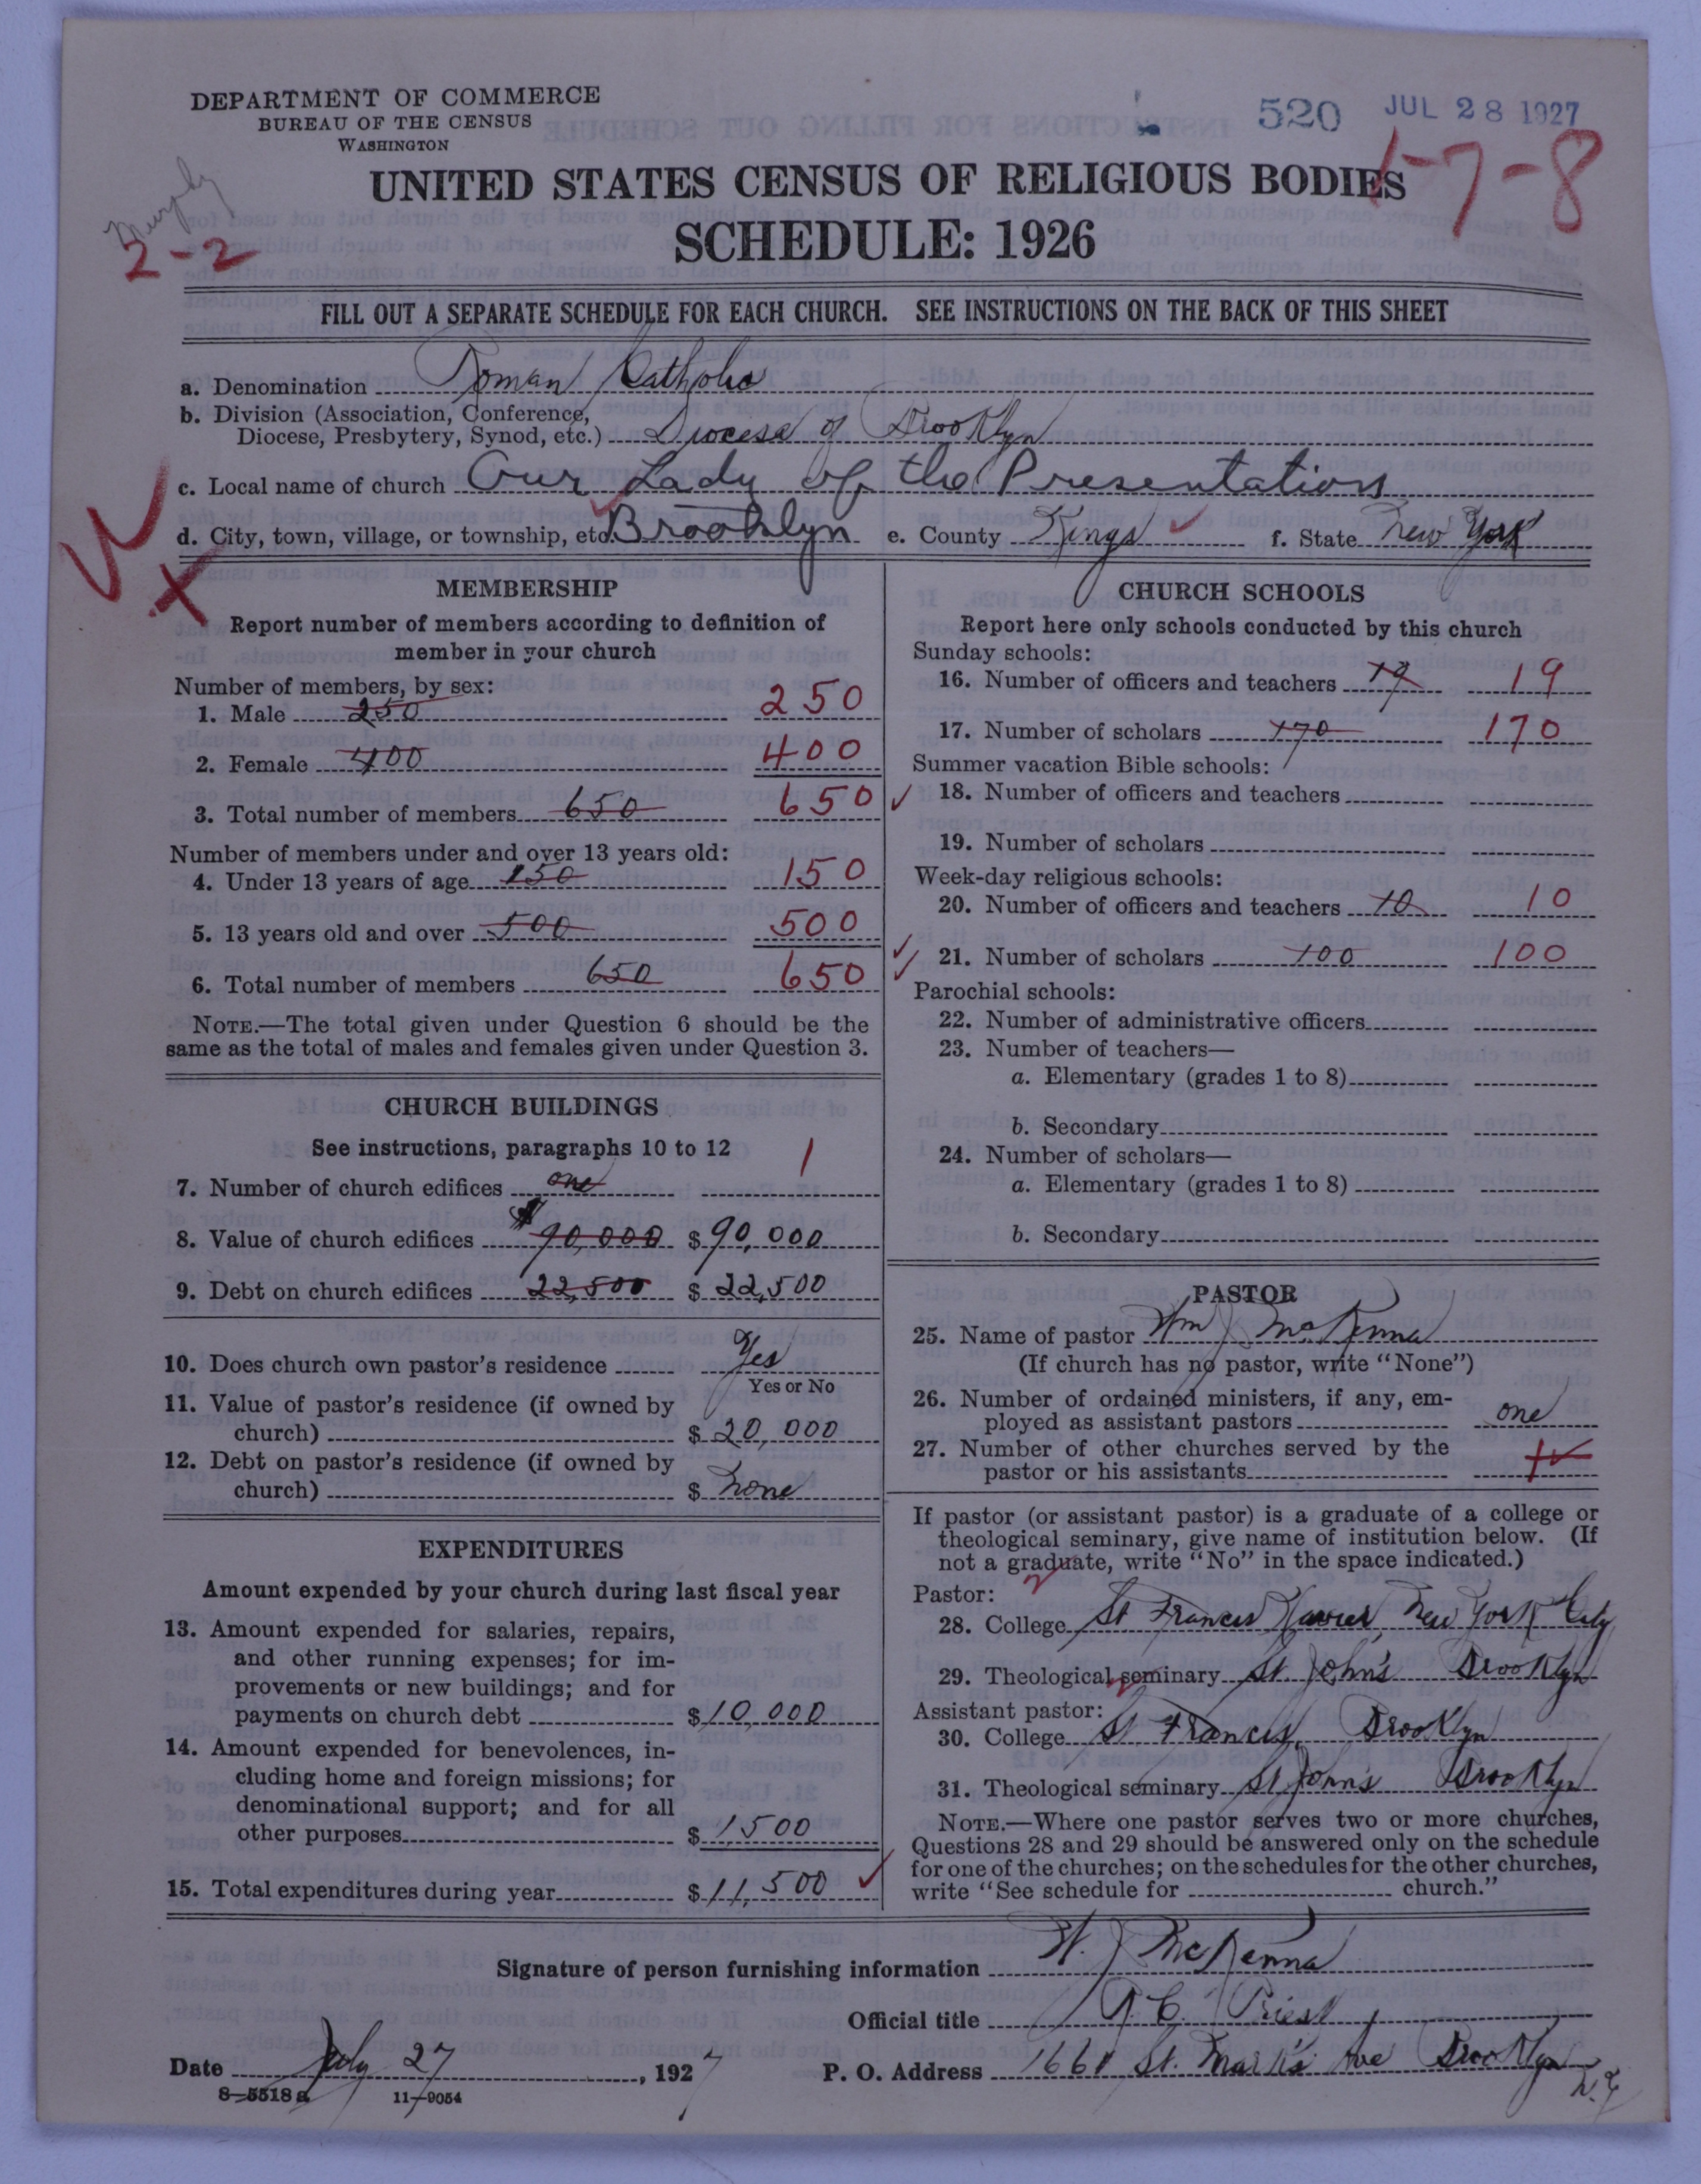 DEPARTMENT OF COMMERCE
BUREAU OF THE CENSUS
WASHINGTON
520 JUL 28 1927
1-7-8
Murphy
2-2
UNITED STATES CENSUS OF RELIGIOUS BODIES
SCHEDULE: 1926
FILL OUT A SEPARATE SCHEDULE FOR EACH CHURCH. SEE INSTRUCTIONS ON THE BACK OF THIS SHEET
a. Denomination Roman Catholic
b. Division (Association, Conference,
Diocese, Presbytery, Synod, etc.) Diocese of Brooklyn
c. Local name of church Our Lady of the Presentation
d. City, town, village, or township, etc. Brooklyn e. County Kings f. State New York
MEMBERSHIP
Report number of members according to definition of
member in your church
Number of members, by sex:
1. Male 250 250
2. Female 400 400
3. Total number of members 650 650
Number of members under and over 13 years old:
4. Under 13 years of age 150 150
5. 13 years old and over 500 500
6. Total number of members 650 650
NOTE.—The total given under Question 6 should be the
same as the total of males and females given under Question 3.
CHURCH BUILDINGS
See instructions, paragraphs 10 to 12
7. Number of church edifices one 1
8. Value of church edifices $90,000 $90,000
9. Debt on church edifices 22,500 $22,500
10. Does church own pastor's residence Yes
Yes or No
11. Value of pastor's residence (if owned by
church) $20,000
12. Debt on pastor's residence (if owned by
church) $ None
EXPENDITURES
Amount expended by your church during last fiscal year
13. Amount expended for salaries, repairs,
and other running expenses; for im-
provements or new buildings; and for
payments on church debt $10,000
14. Amount expended for benevolences, in-
cluding home and foreign missions; for
denominational support; and for all
other purposes $1,500
15. Total expenditures during year $11,500
CHURCH SCHOOLS
Report here only schools conducted by this church
Sunday schools:
16. Number of officers and teachers 19 19
17. Number of scholars 170 170
Summer vacation Bible schools:
18. Number of officers and teachers
19. Number of scholars
Week-day religious schools:
20. Number of officers and teachers 10 10
21. Number of scholars 100 100
Parochial schools:
22. Number of administrative officers
23. Number of teachers—
a. Elementary (grades 1 to 8)
b. Secondary
24. Number of scholars—
a. Elementary (grades 1 to 8)
b. Secondary
PASTOR
25. Name of pastor Wm J McKenna
(If church has no pastor, write "None")
26. Number of ordained ministers, if any, em-
ployed as assistant pastors one
27. Number of other churches served by the
pastor or his assistants
If pastor (or assistant pastor) is a graduate of a college or
theological seminary, give name of institution below. (If
not a graduate, write "No" in the space indicated.)
Pastor:
28. College St Francis Xavier, New York City
29. Theological seminary St. John's Brooklyn
Assistant pastor:
30. College St. Francis, Brooklyn
31. Theological seminary St John's Brooklyn
NOTE.—Where one pastor serves two or more churches,
Questions 28 and 29 should be answered only on the schedule
for one of the churches; on the schedules for the other churches,
write "See schedule for church."
Signature of person furnishing information W. J McKenna
Official title R. C. Priest
Date July 27, 1927 P. O. Address 1661 St. Mark's Ave Brooklyn
N.Y.
8-5518 a 11-9054